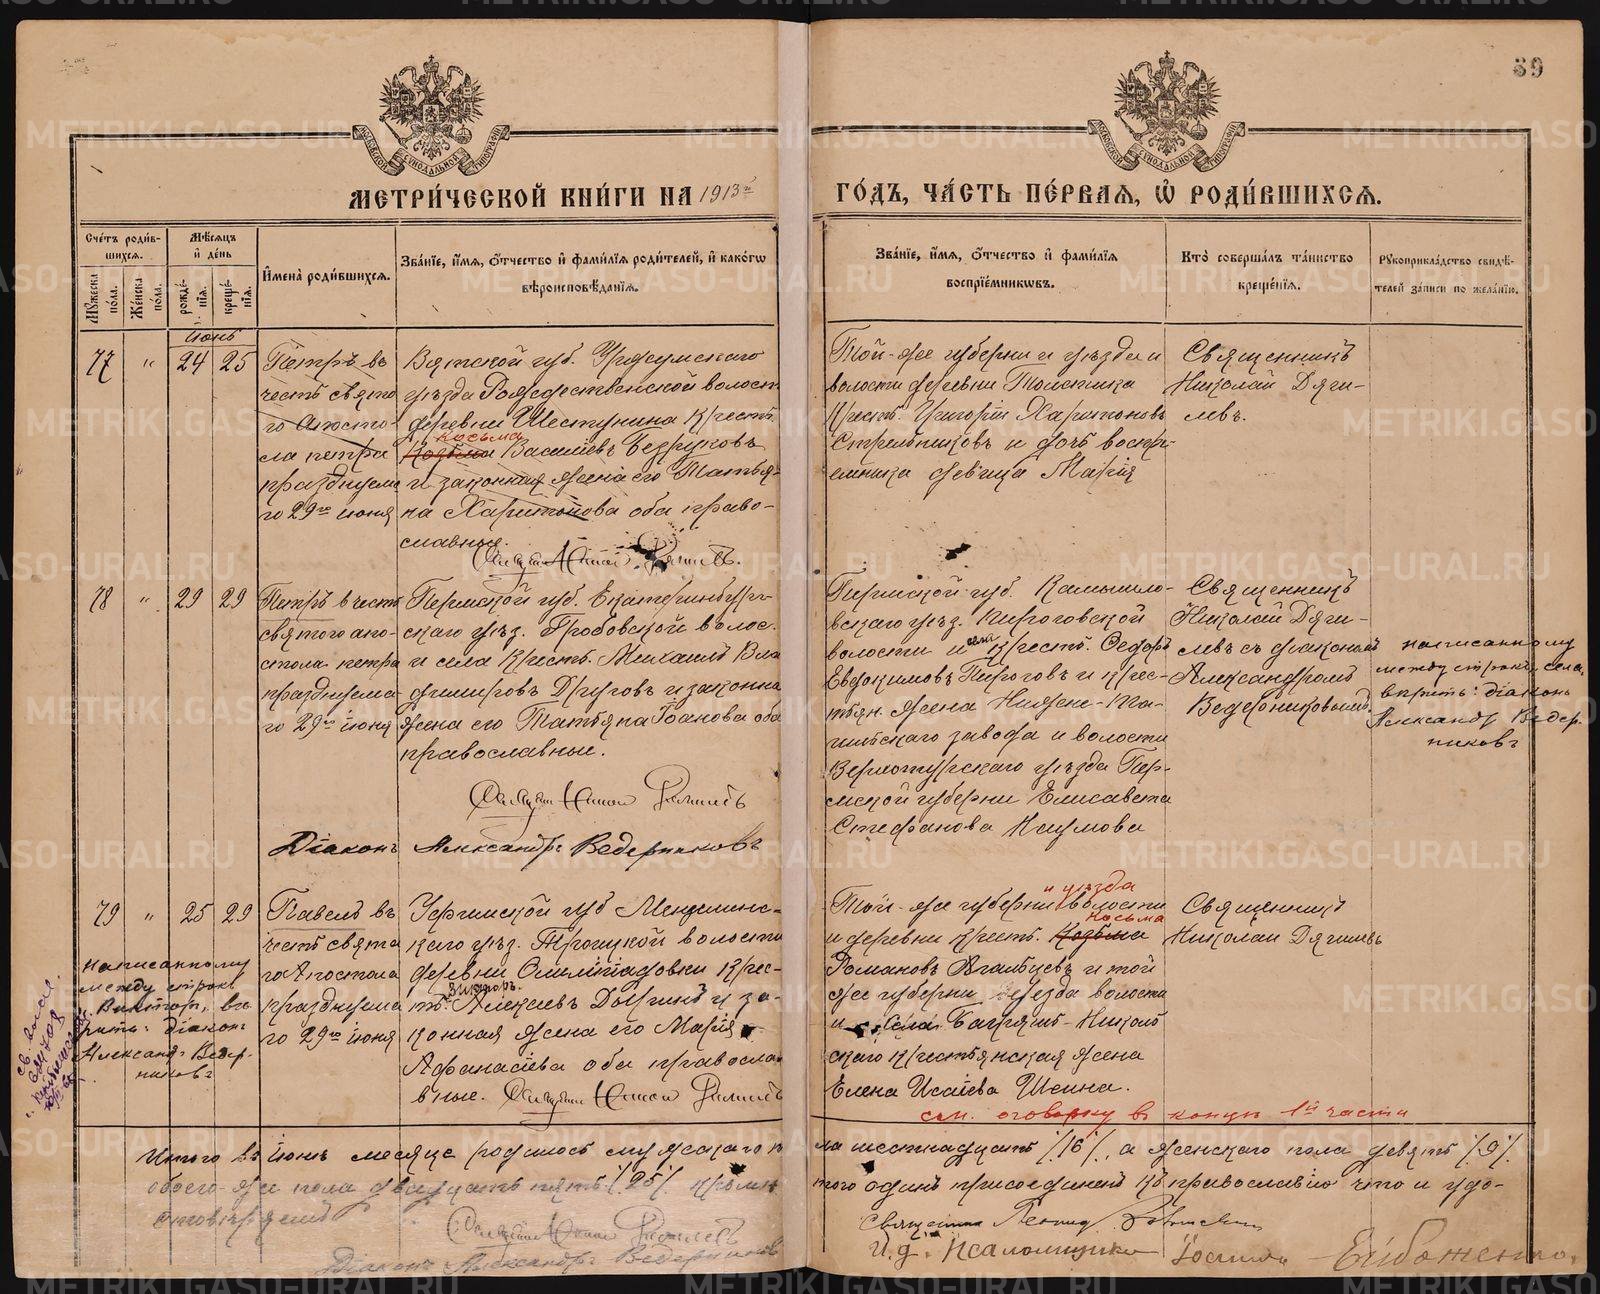 59
МЕТРИ́ЧЕСКОЙ КНИ́ГИ НА 1913й
ГО́ДЪ, ЧА́СТЬ ПЕ́РВАЯ, Ѡ҆ РОДИ́ВШИХСЯ.
Сче́тъ роди́в-
шихся.
Му́жеска по́ла.
Же́нска по́ла.
Мѣ́сяцъ и҆ де́нь
рожде́-нїя.
креще́-нїя.
И҆мена̀ роди́вшихся.
Зва́нїе, и҆́мя, ѻ҆́тчество и҆ фами́лїя роди́телей, и҆ како́гѡ
вѣроисповѣ́данїя.
Зва́нїе, и҆́мя, ѻ҆́тчество и҆ фами́лїя
воспрїе́мникѡвъ.
Кто̀ соверша́лъ та́инство
креще́нїя.
Рꙋкоприкла́дство свидѣ́-
телей за́писи по жела́нїю.
Іюнь
77 " 24 25
Петръ въ
честь свято
го Апосто-
ла петра
празднуема
го 29го іюня
Вятской губ. Уржумскаго
уѣзда Рождественской волост.
деревни Шестунина крест.
Косьма
Козьма Васильевъ Бедруговъ
и законная жена его Татья-
на Харитонова оба право-
славные.
Той-же губерніи и уѣзда и
волости деревни Толстика
крест. Григорій Харитоновъ
Стрѣльниковъ и дочь воспрі-
емника дѣвица Марія
Священникъ
Николай Дяги-
левъ.
78 " 29 29
Петръ въ честь
святого апо-
стола петра
празднуема-
го 29го іюня
Пермской губ. Екатеринбург-
скаго уѣз. Гробовской волос.
и села крест. Михаилъ Вла
диміровъ Друговъ и законна
жена его Татьяна Іоанова оба
православные.
Діаконъ Александръ Ведерниковъ
Пермской губ. Камышло-
вскаго уѣз. Пироговской
волости и села крест. Ѳедоръ
Евдокимовъ Пироговъ и крес-
тьян. жена Нижне-Та-
гильскаго завода и волости
Верхотурскаго уѣзда Пер-
мской губерніи Елисавета
Стефанова Наумова
Священникъ
Николай Дяги-
левъ съ діакономъ
Александромъ
Ведерниковымъ
Написанному
между строкъ: села,
вѣрить: діаконъ
Александръ Ведер-
никовъ
79 " 25 29
Павелъ въ
честь свята
го Апостола
празднуема
го 29го іюня
Уфимской губ Мензелинс-
каго уѣз. Троицкой волости
деревни крес-
Викторъ.
т. Алексѣевъ и за-
конная жена его Марія
Афанасіева оба православ
вные.
Написанному
между строкъ
Викторъ, вѣ
рить: діаконъ
Александръ Ведер-
никовъ
Той-же губерніи и уѣзда волости
Косьма
и деревни крест. Козьма
Романовъ и той
же губерніи, уѣзда волости
и села Багряшъ-Николь
скаго крестьянская жена
Елена Исаіева Шеина.
Священникъ
Николай Дягилевъ
см. оговорку въ концѣ 1й части
Итого въ Іюнѣ месяцѣ родилось мужскаго п
ла шестнадцать /16/, а женскаго пола девять /9/.
обоего-же пола двадцать пять /25/ кромѣ
того одинъ присоединенъ къ православію что и удо-
стовѣряемъ
Діаконъ Александръ Ведерниковъ
Священникъ Леонид
И.д. Псаломщика
METRIKI.GASO-URAL.RU